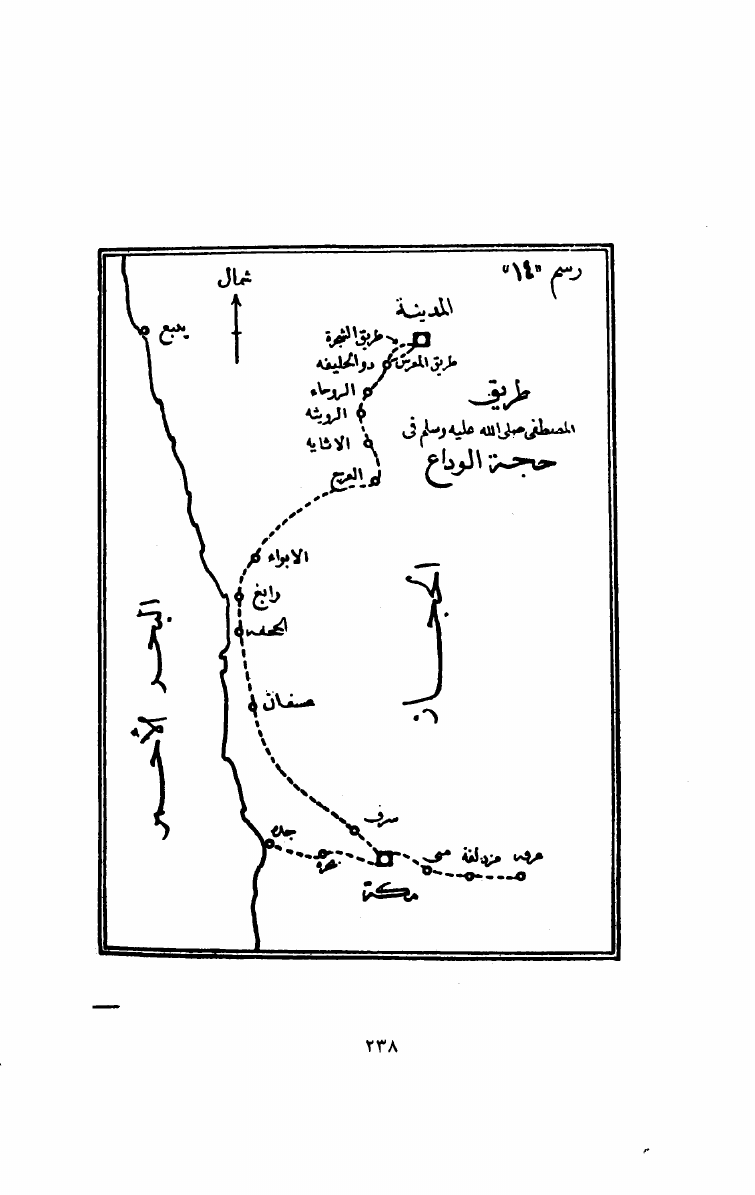 رسم "١٤"
شمال
المدينة
ينبع
طريق الشجرة
طريق المعرس
ذو الحليفه
الروحاء
طريق
الرويثه
المصطفى صلى الله عليه وسلم في
الاثايه
حجة الوداع
العرج
الابواء
رابغ
الجحفه
الحجاز
البحر الأحمر
عسفان
سرف
جده
بحره
منى
مزدلفة
عرفه
مكة
٢٣٨